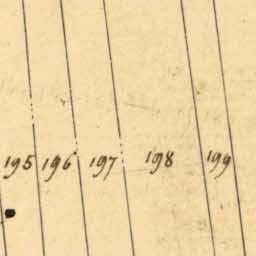 195 196 197 198 199